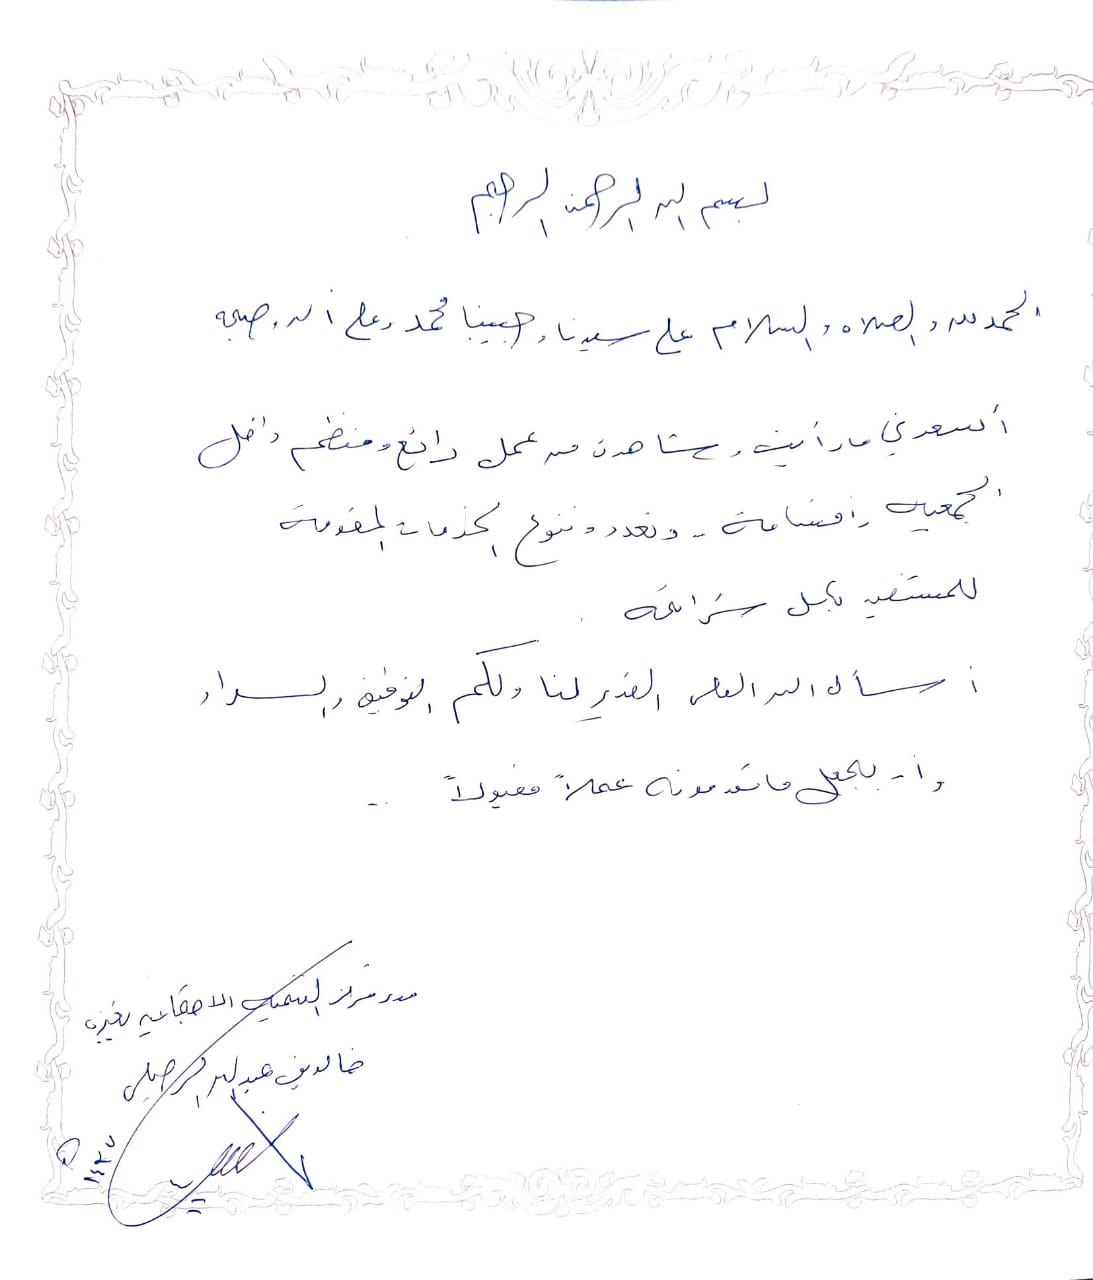 بسم الله الرحمن الرحيم
الحمد لله والصلاه والسلام على سيدنا وحبيبنا محمد وعلى أله وصحبه
أسعدني مارأيت وشاهدت من عمل رائع ومنظم داخل
الجمعيه وأقسامه - وتعدد وتنوع الخدمات المقدمة
للمستفيد بكل شرائحه .
أسأل الله العلي القدير لنا ولكم التوفيق والسداد
وأن يجعل ماتقدمونه عملاً مقبولاً ..
مدير مركز التنميه الاجتماعيه
خالد بن عبدالله
١٤٣٧
هـ